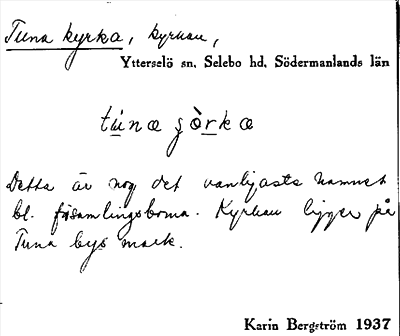 Tuna kyrka, kyrkan,
Ytterselö sn, Selebo hd, Södermanlands län
tu̲næ çò̲rkæ
Detta är nog det vanligaste namnet
bl. församlingsborna. Kyrkan ligger på
Tuna bys mark.
Karin Bergström 1937